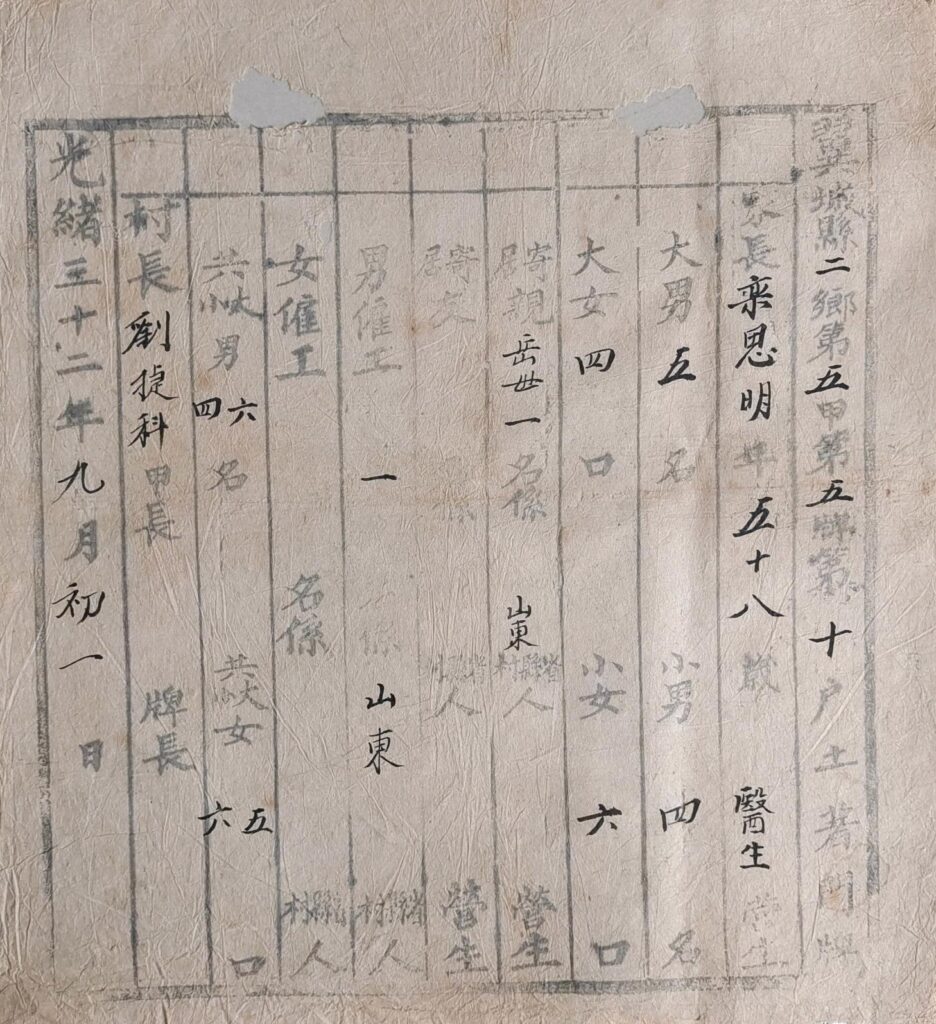 翼城縣二鄉第五甲第五牌第十户土著門牌
家長栾思明年五十八歲醫生營生
大男五名小男四名
大女四口小女六口
寄居親岳母一名係山東省縣村人營生
寄居友係省縣村人營生
男僱工一係山東省縣村人
女僱工名係省縣村人
共大小男六四名共大小女五六口
村長劉捷科甲長牌長
光緒三十二年九月初一日